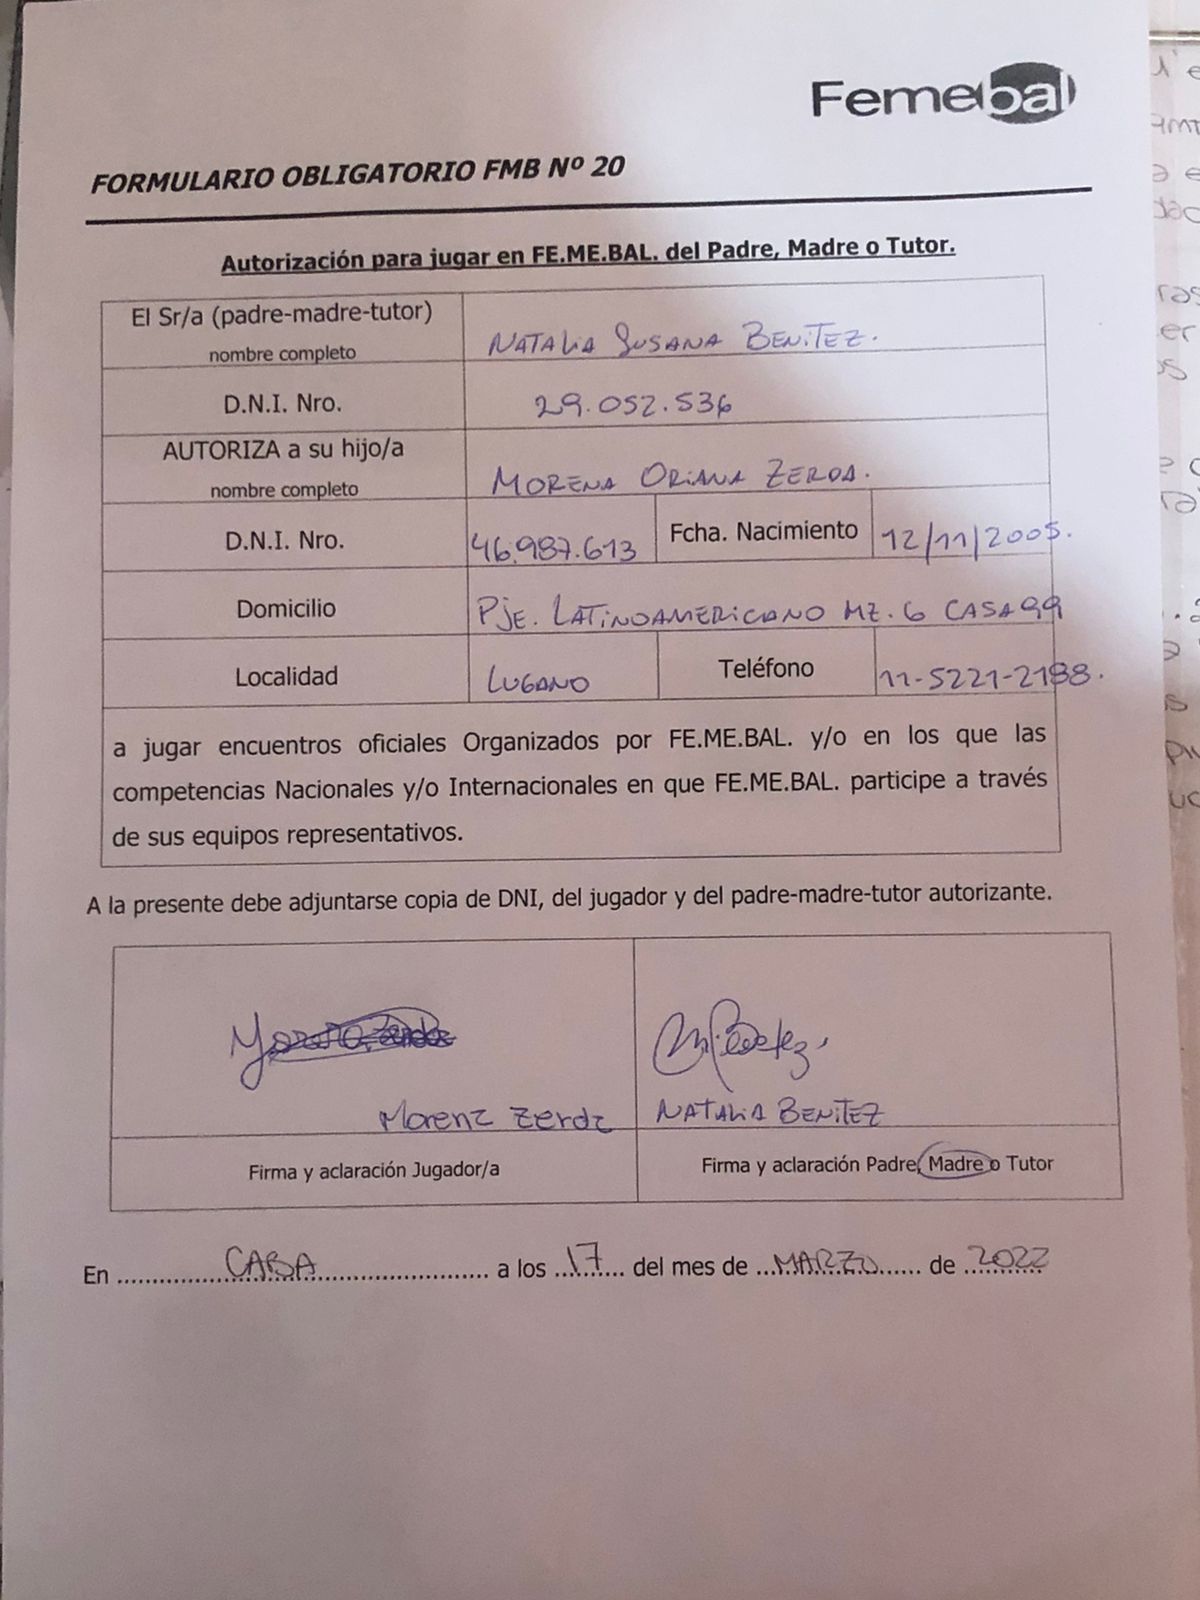 Femebal
FORMULARIO OBLIGATORIO FMB Nº 20
Autorización para jugar en FE.ME.BAL. del Padre, Madre o Tutor.
El Sr/a (padre-madre-tutor)
nombre completo
NATALIA SUSANA BENITEZ.
D.N.I. Nro.
29.052.536
AUTORIZA a su hijo/a
nombre completo
MORENA ORIANA ZERDA.
D.N.I. Nro.
46.987.613
Fcha. Nacimiento
12/11/2005.
Domicilio
PJE. LATINOAMERICANO MZ. 6 CASA 99
Localidad
LUGANO
Teléfono
11-5221-2188.
a jugar encuentros oficiales Organizados por FE.ME.BAL. y/o en los que las
competencias Nacionales y/o Internacionales en que FE.ME.BAL. participe a través
de sus equipos representativos.
A la presente debe adjuntarse copia de DNI, del jugador y del padre-madre-tutor autorizante.
Morena Zerda
NATALIA BENITEZ
Firma y aclaración Jugador/a
Firma y aclaración Padre, Madre o Tutor
En CABA a los 17 del mes de MARZO de 2022